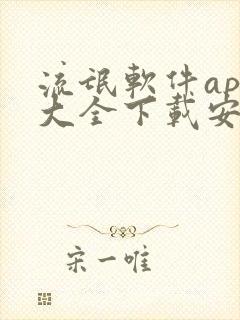 流氓軟件ap
大全下載安
宋一唯